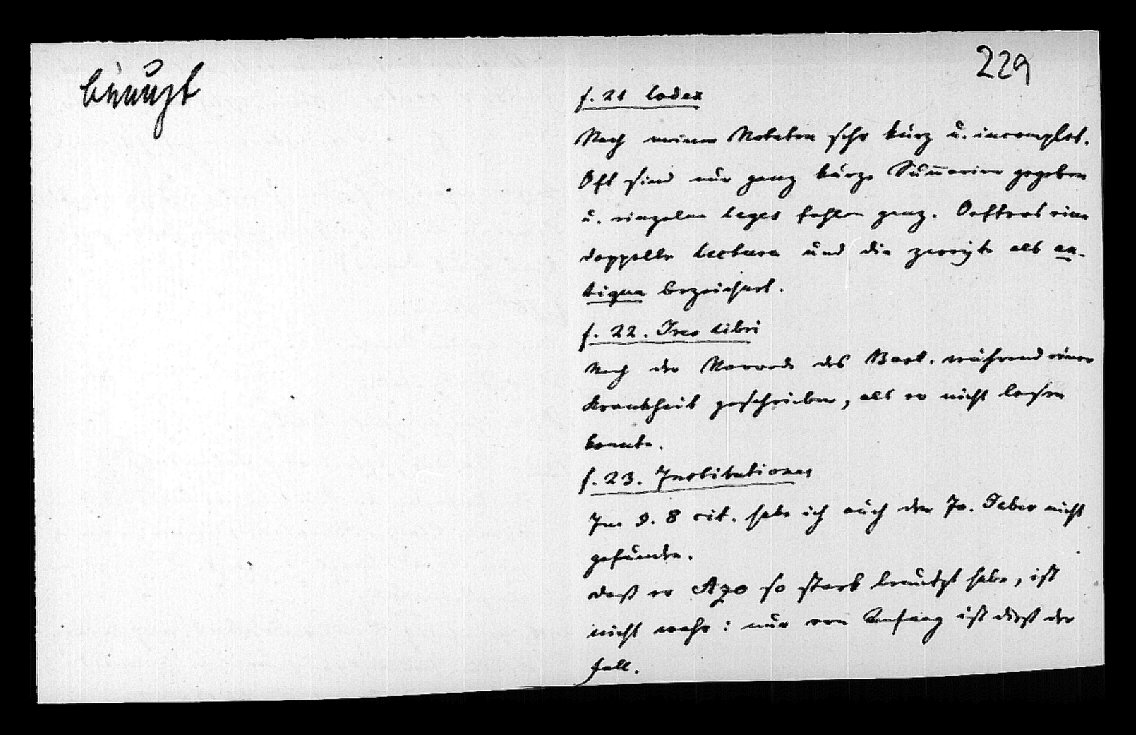 benutzt
229
f. 21 Codex
Nach meinen Notaten sehr kurz u. incomplet.
Oft sind nur ganz kurze Sum̅arien gegeben
u. einzelne Leges fehlen ganz. Oefters eine
doppelte Lectura und die zweite als an-
tiqua bezeichnet.
f. 22. Tres Libri
Nach der Vorrede des Bart. während einer
Krankheit geschrieben, als er nicht lesen
konnte.
f. 23. Institutiones
Im 8 cit. habe ich auch den Jo. Faber nicht
gefunden.
daß er Azo so stark benutzt habe, ist
nicht wahr: nur von Anfang ist dieß der
Fall.